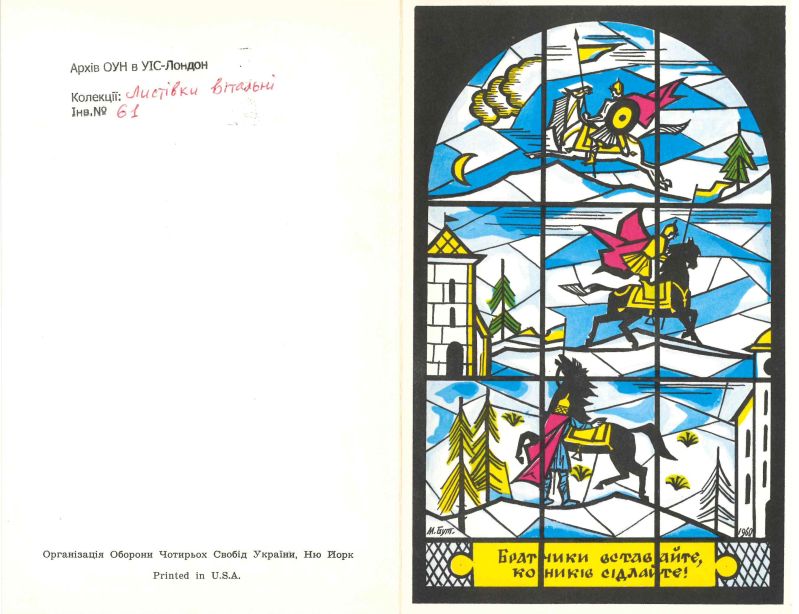 Архів ОУН в УІС-Лондон
Колекції: Листівки вітальні
Інв.№ 61
Організація Оборони Чотирьох Свобід України, Ню Йорк
Printed in U.S.A.
М. Бут. 1960
Братчики вставайте,
коників сідлайте!